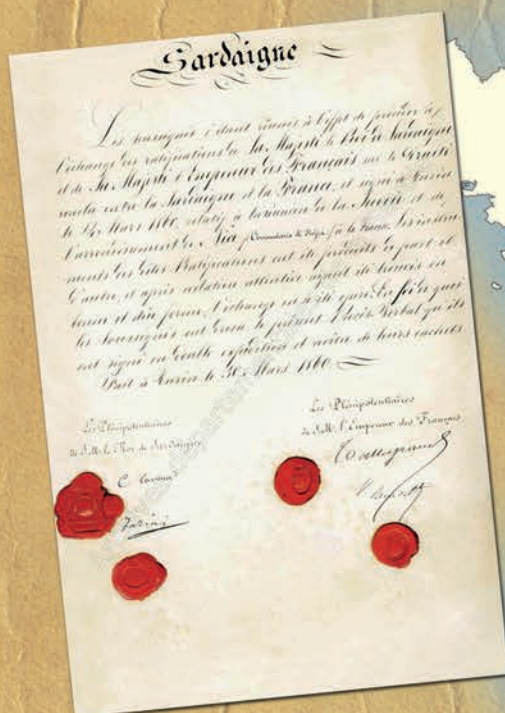 Sardaigne
Les soussignés s'étant réunis à l'effet de procéder à
l'échange des ratifications de Sa Majesté le Roi de Sardaigne
et de Sa Majesté l'Empereur des Français sur le Traité
conclu entre la Sardaigne et la France, et signé à Turin
le 24 Mars 1860, relatif à la réunion de la Savoie et de
l'arrondissement de Nice à la France, les instru-
ments des dites Ratifications ont été produits de part et
d'autre, et après collation attentive ayant été trouvés en
bonne et due forme, l'échange en a été opéré. En foi de quoi
les Soussignés ont dressé le présent Procès Verbal qu'ils
ont signé en double expédition et muni de leurs cachets.
Fait à Turin, le 30 Mars 1860
Les Plénipotentiaires
de S.M. le Roi de Sardaigne
C. Cavour
Farini
Les Plénipotentiaires
de S.M. l'Empereur des Français
Talleyrand